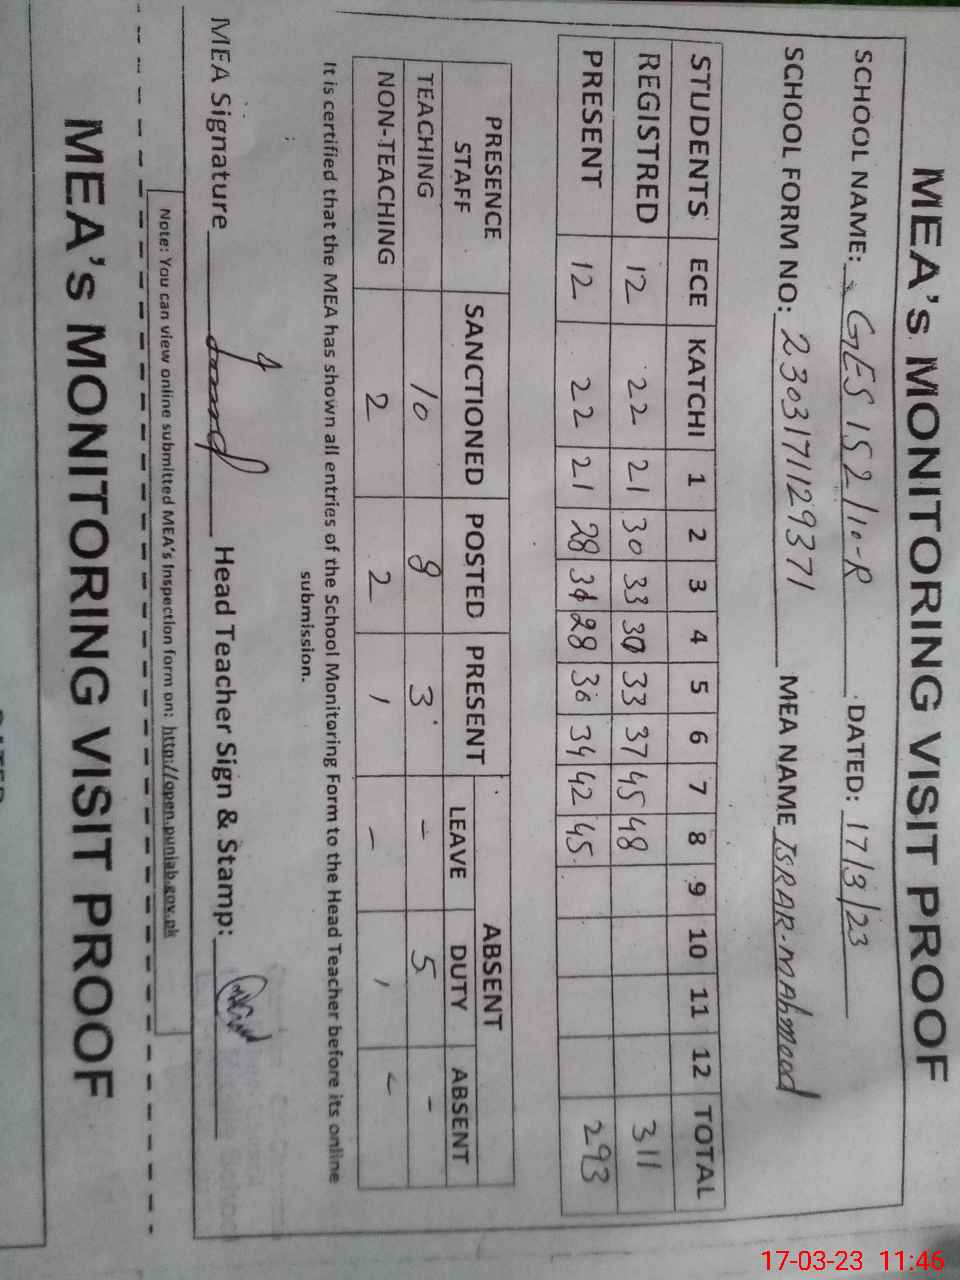 MEA's MONITORING VISIT PROOF
SCHOOL NAME: GES 152/10-R DATED: 17/3/23
SCHOOL FORM NO: 2303171129371 MEA NAME ISRAR-MAhmood
STUDENTS ECE KATCHI 1 2 3 4 5 6 7 8 9 10 11 12 TOTAL
REGISTRED 12 22 21 30 33 30 33 37 45 48 311
PRESENT 12 22 21 28 31 28 30 34 42 45 293
PRESENCE STAFF SANCTIONED POSTED PRESENT ABSENT
LEAVE DUTY ABSENT
TEACHING 10 8 3 - 5 -
NON-TEACHING 2 2 1 - 1 -
It is certified that the MEA has shown all entries of the School Monitoring Form to the Head Teacher before its online
submission.
MEA Signature Head Teacher Sign & Stamp:
Note: You can view online submitted MEA's Inspection form on: http://open.punjab.gov.pk
MEA's MONITORING VISIT PROOF
17-03-23 11:46